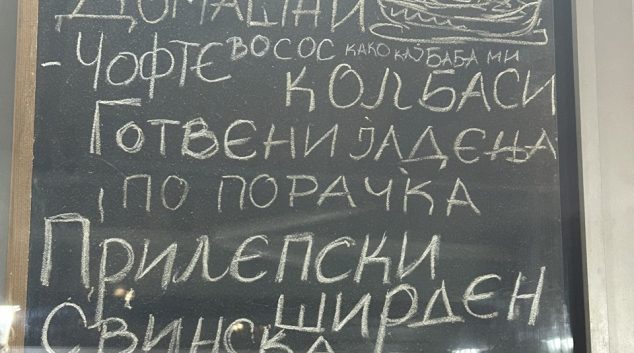 ДОМАШНИ
- ЧОФТЕ ВО СОС КАКО КАЈ БАБА МИ
КОЛБАСИ
ГОТВЕНИ ЈАДЕЊА
ПО ПОРАЧКА
ПРИЛЕПСКИ
ШИРДЕН
СВИНСКА